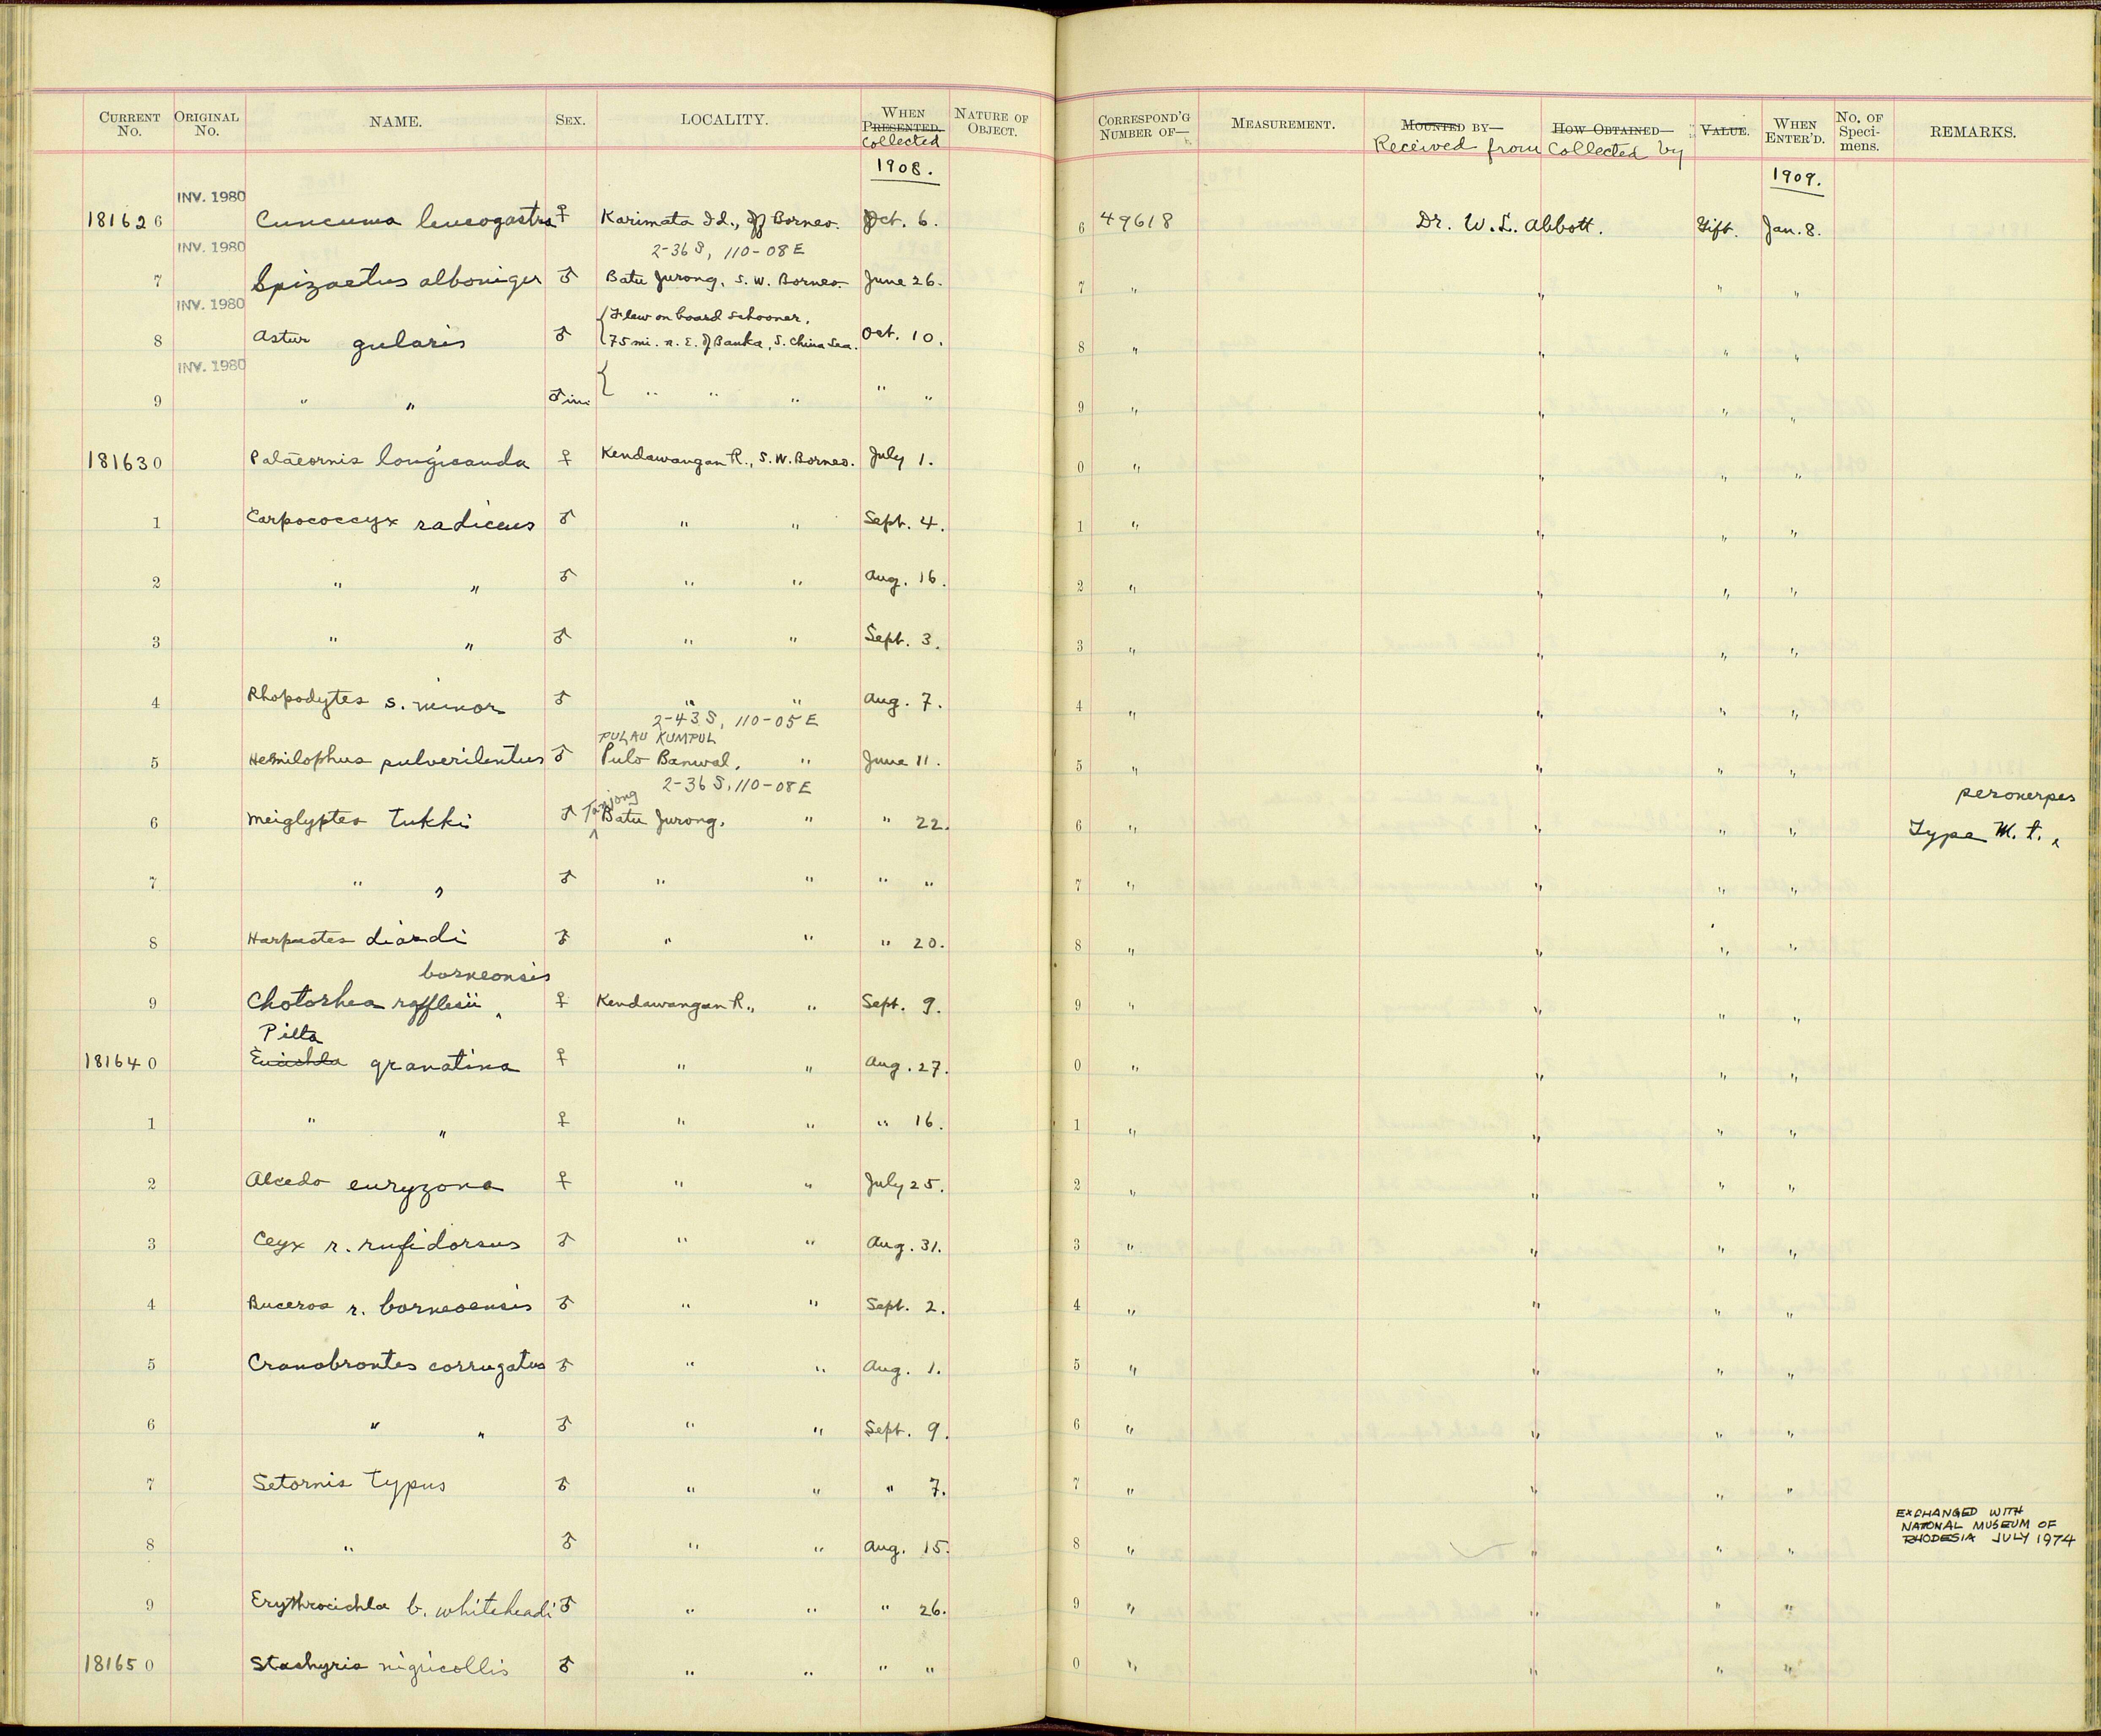 CURRENT No. ORIGINAL No. NAME. SEX. LOCALITY. WHEN PRESENTED. Collected NATURE OF OBJECT. CORRESPOND'G NUMBER OF— MEASUREMENT. MOUNTED BY— Received from HOW OBTAINED— Collected by VALUE. WHEN ENTER'D. No. OF Specimens. REMARKS.
1908. 1909.
INV. 1980
181626 Cuncuma leucogastra ♀ Karimata Id., off Borneo. Oct. 6. 6 49618 Dr. W. L. Abbott. Gift. Jan. 8.
INV. 1980 2-36 S, 110-08 E
7 Spizaetus alboniger ♂ Batu Jurong, S. W. Borneo. June 26. 7 " " " "
INV. 1980 Flew on board schooner,
8 Astur gularis ♂ 75 mi. n. E. of Banka, S. China Sea. Oct. 10. 8 " " " "
INV. 1980
9 " " ♂ im. " " " " " 9 " " " "
181630 Palaeornis longicauda ♀ Kendawangan R., S. W. Borneo. July 1. 0 " " " "
1 Carpococcyx radiceus ♂ " " Sept. 4. 1 " " " "
2 " " ♂ " " Aug. 16. 2 " " " "
3 " " ♂ " " Sept. 3. 3 " " " "
4 Rhopodytes s. minor ♂ " " Aug. 7. 4 " " " "
2-43 S, 110-05 E
PULAU KUMPUL
5 Hemilophus pulverilentus ♂ Pulo Banwal, " June 11. 5 " " " "
2-36 S, 110-08 E
Tanjong peronerpes
6 Meiglyptes tukki ♂ Batu Jurong, " " 22. 6 " " " " Type M. t. ^
7 " " ♂ " " " " 7 " " " "
8 Harpactes diardi ♂ " " " 20. 8 " " " "
borneonsis
9 Chotorhea rafflesii ^ ♀ Kendawangan R., " Sept. 9. 9 " " " "
Pitta
181640 Eucichla granatina ♀ " " Aug. 27. 0 " " " "
1 " " ♀ " " " 16. 1 " " " "
2 Alcedo euryzona ♀ " " July 25. 2 " " " "
3 Ceyx r. rufidorsus ♂ " " Aug. 31. 3 " " " "
4 Buceros r. borneoensis ♂ " " Sept. 2. 4 " " " "
5 Cranobrontes corrugatus ♂ " " Aug. 1. 5 " " " "
6 " " ♂ " " Sept. 9. 6 " " " "
7 Setornis typus ♂ " " " 7. 7 " " " "
EXCHANGED WITH
NATIONAL MUSEUM OF
8 " ♂ " " Aug. 15. 8 " " " " RHODESIA JULY 1974
9 Erythrocichla b. whiteheadi ♂ " " " 26. 9 " " " "
181650 Stachyris nigricollis ♂ " " " " 0 " " " "